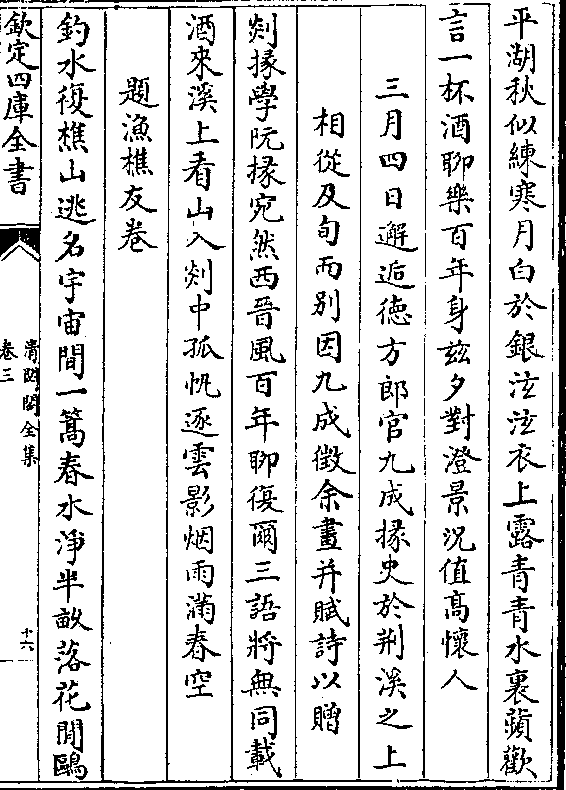 平湖秋似練寒月白於銀泫泫衣上露青青水裏蘋歡
言一杯酒聊樂百年身兹夕對澄景況值髙懷人
三月四日邂逅徳方郎官九成掾史於荆溪之上
相從及旬而别因九成徴余畫并賦詩以贈
剡掾學阮掾宛然西晉風百年聊復爾三語將無同載
酒來溪上看山入剡中孤帆逐雲影烟雨滿春空
題漁樵友卷
釣水復樵山逃名宇宙間一篙春水淨半畝落花閒鷗
欽定四庫全書
清閟閣全集
卷三
十六